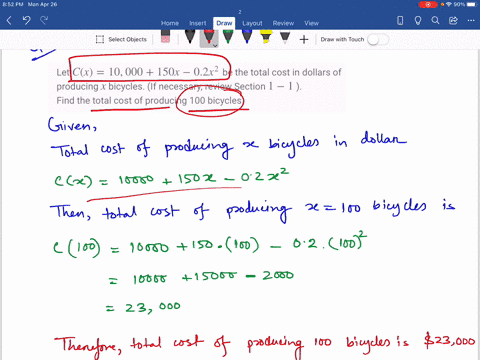 8:52 PM Mon Apr 26
90%
2
Home Insert Draw Layout Review View
Select Objects
Draw with Touch
Let C(x) = 10,000 + 150x − 0.2x² be the total cost in dollars of
producing x bicycles. (If necessary, review Section 1 − 1 ).
Find the total cost of producing 100 bicycles.
Given,
Total cost of producing x bicycles in dollar
C(x) = 10000 + 150x − 0.2x²
Then, total cost of producing x = 100 bicycles is
C(100) = 10000 + 150·(100) − 0.2·(100)²
= 10000 + 15000 − 2000
= 23,000
Therefore, total cost of producing 100 bicycles is $23,000